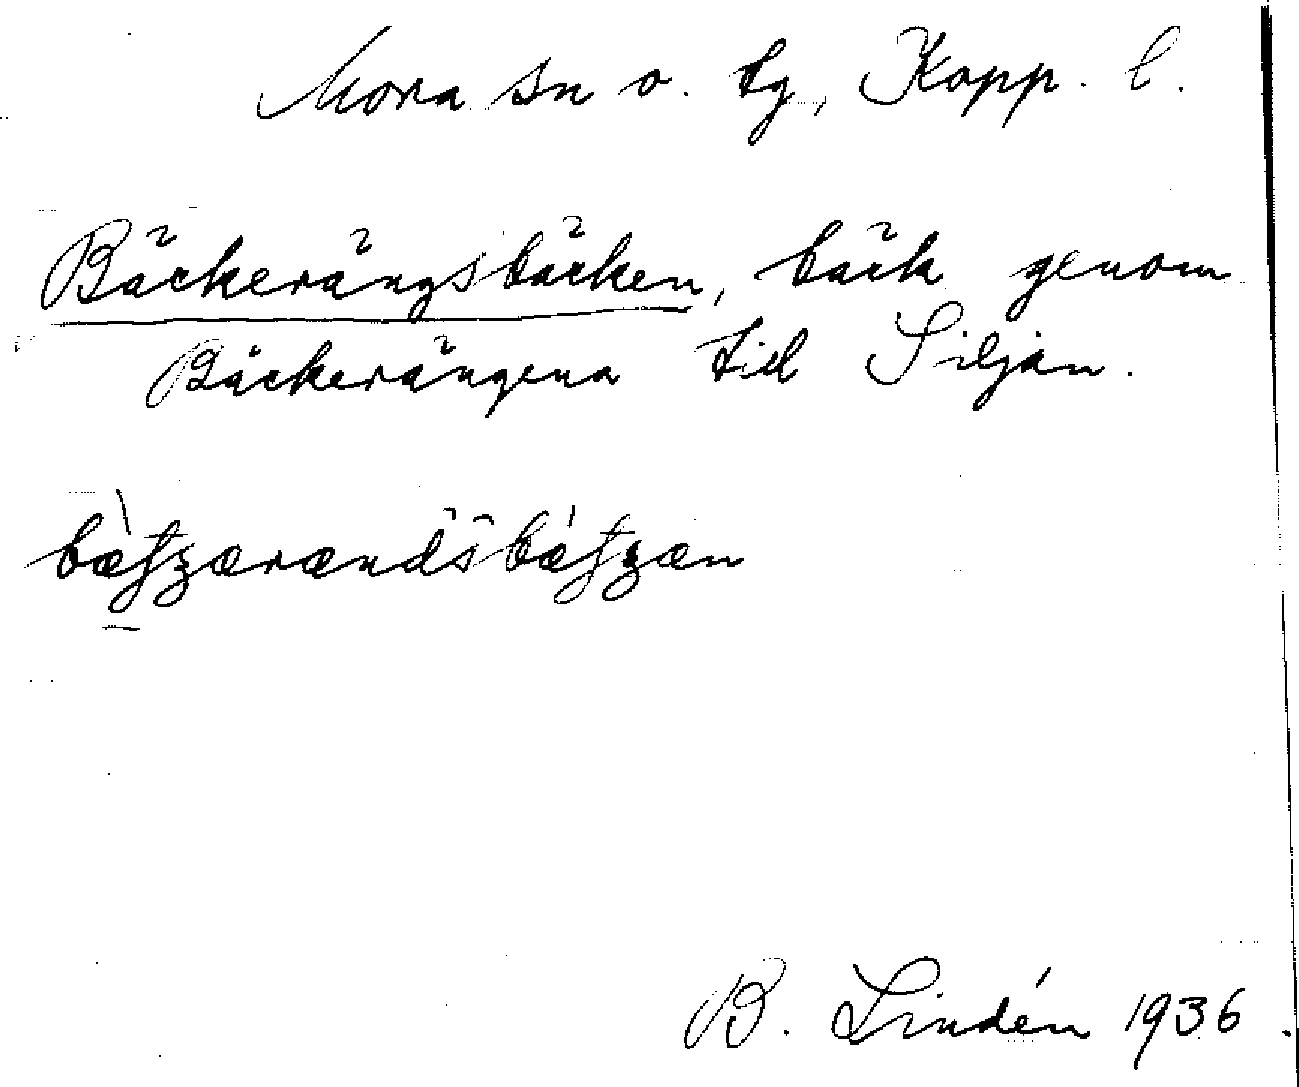 Mora sn o. tg, Kopp. l.
Bäckerängsbäcken, bäck genom
Bäckerängena till Siljan.
B. Lindén 1936.